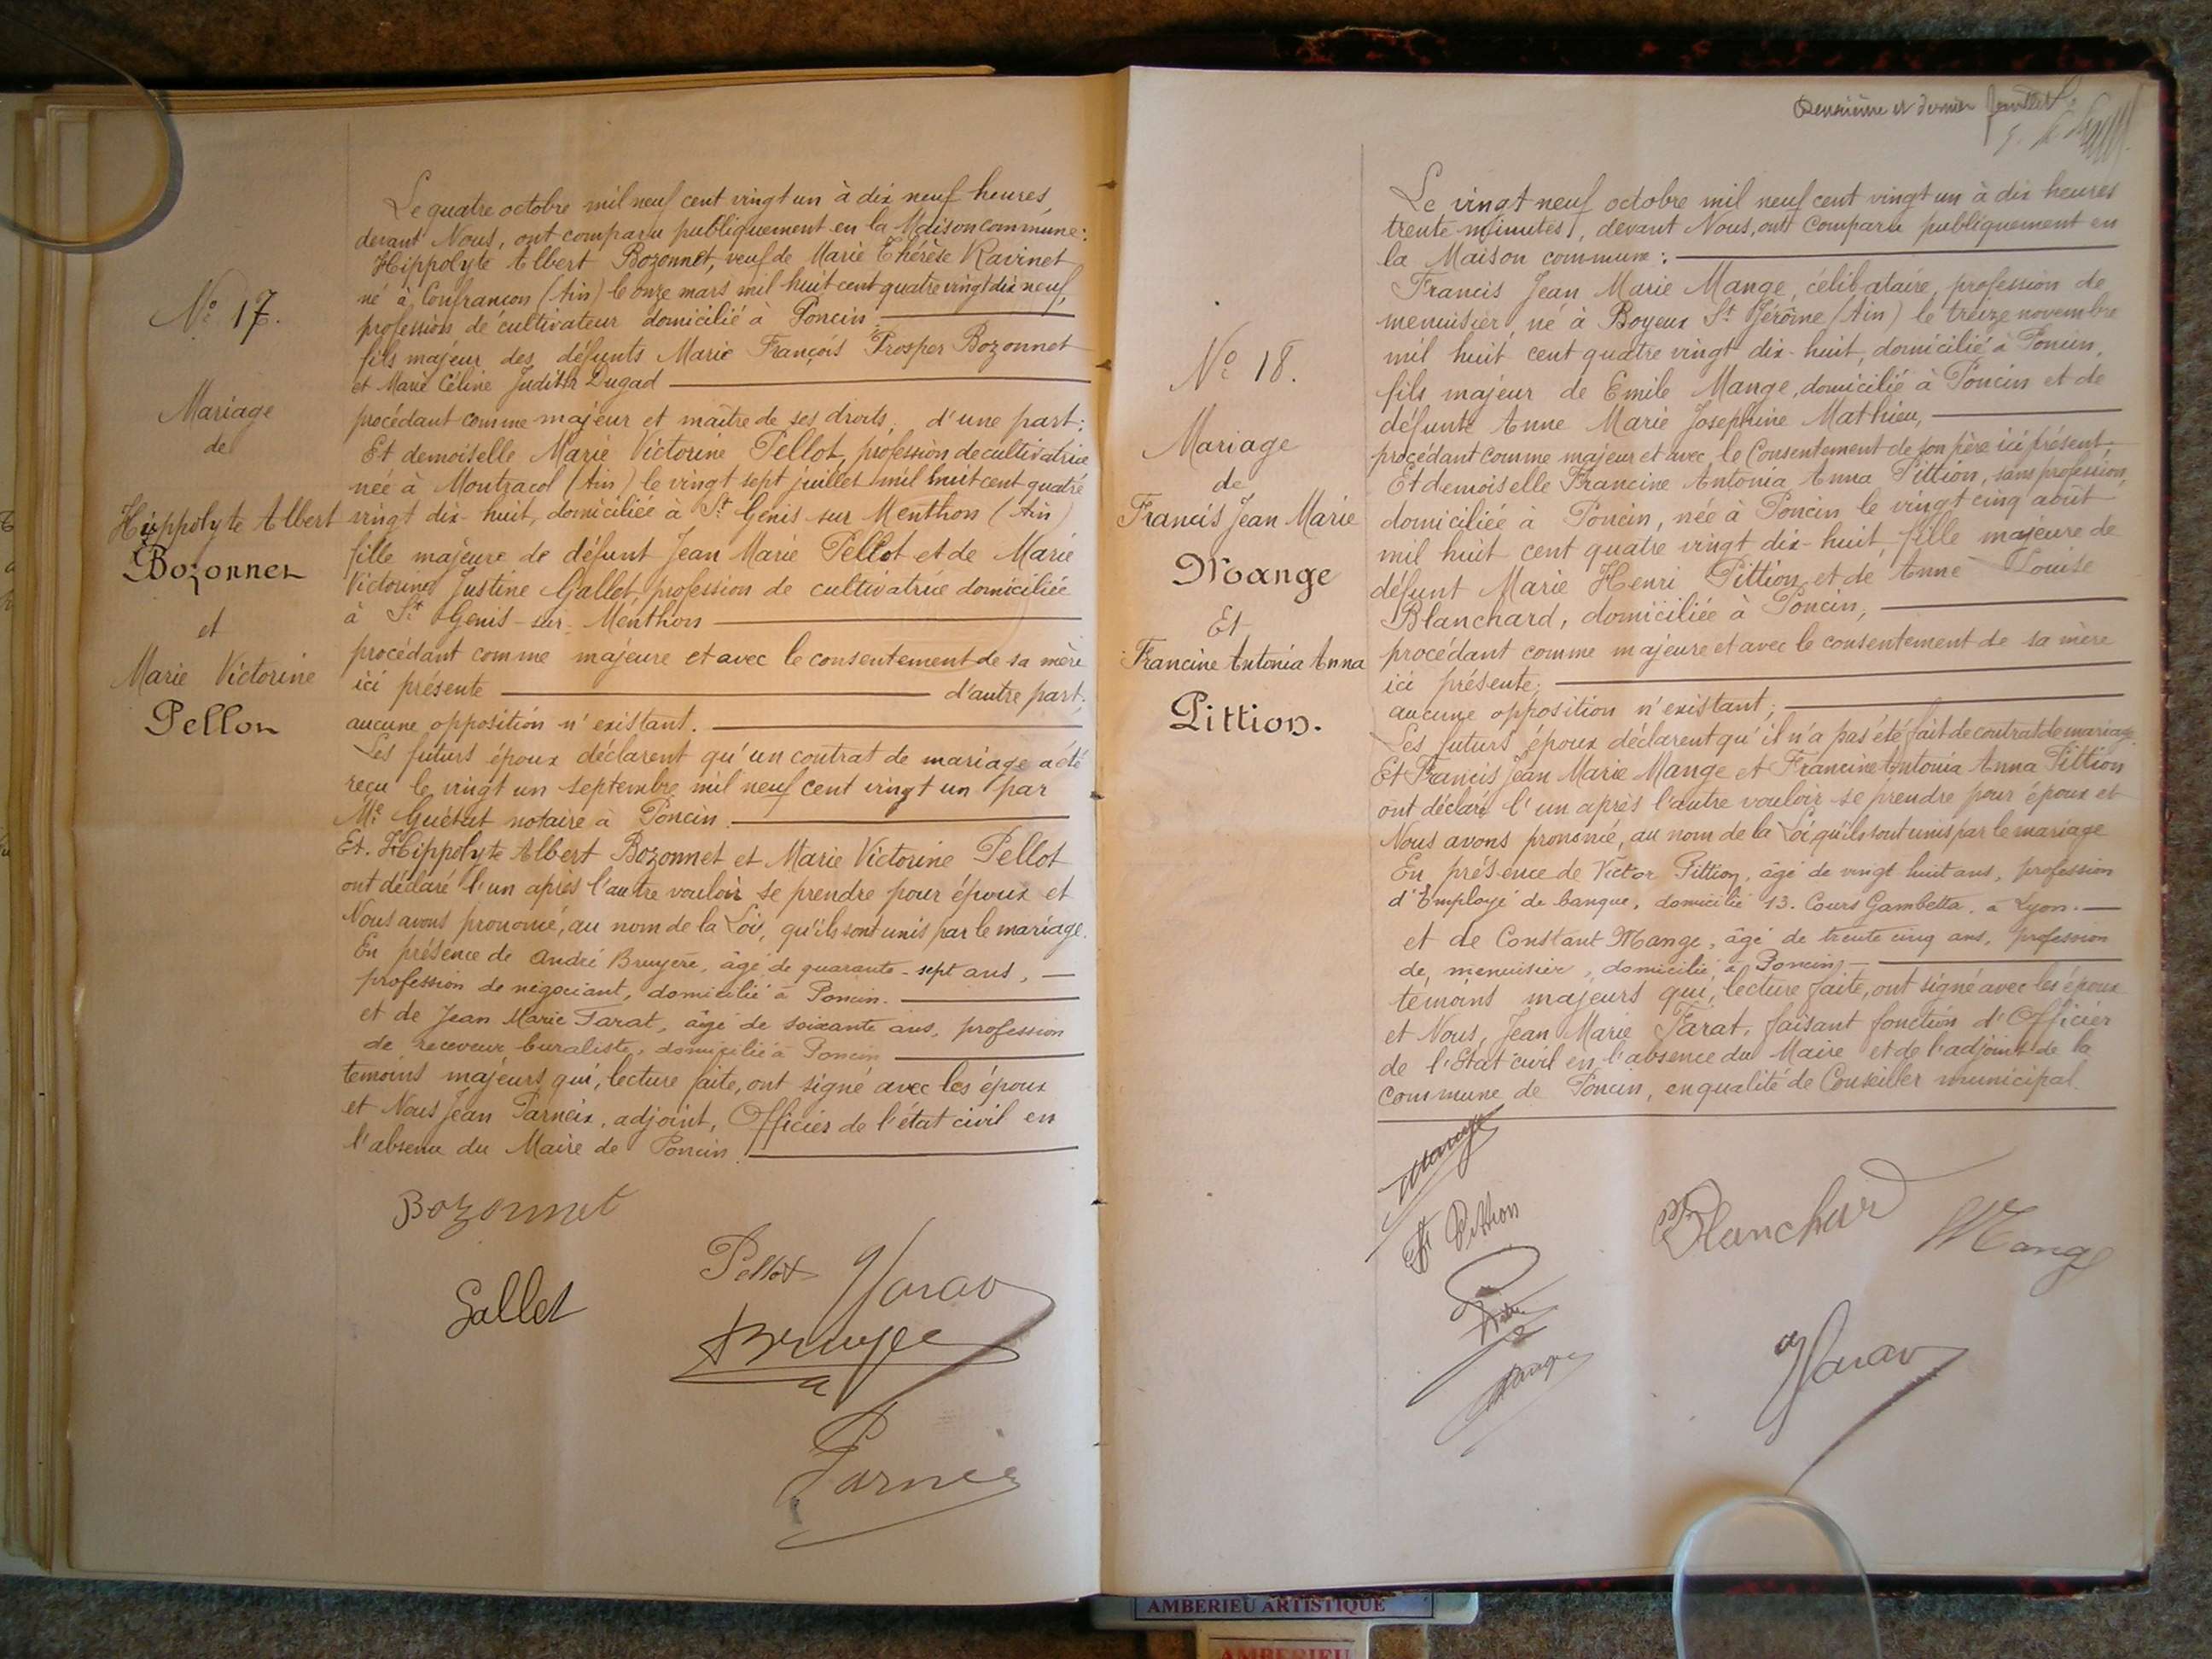 N° 17.
Mariage
de
Hippolyte Albert
Bozonnet
et
Marie Victorine
Pellot
Le quatre octobre mil neuf cent vingt un à dix neuf heures,
devant Nous, ont comparu publiquement en la Maison commune:
Hippolyte Albert Bozonnet, veuf de Marie Thérèse Ravinet
né à Confrançon (Ain) le onze mars mil huit cent quatre vingt dix neuf,
profession de cultivateur domicilié à Poncin,
fils majeur des défunts Marie François Prosper Bozonnet
et Marie Céline Judith Dugad
procédant comme majeur et maître de ses droits, d'une part;
Et demoiselle Marie Victorine Pellot, profession de cultivatrice
née à Montracol (Ain) le vingt sept juillet mil huit cent quatre
vingt dix-huit, domiciliée à St Genis sur Menthon (Ain)
fille majeure de défunt Jean Marie Pellot et de Marie
Victorine Justine Gallet, profession de cultivatrice domiciliée
à St Genis-sur-Menthon
procédant comme majeure et avec le consentement de sa mère
ici présente d'autre part;
aucune opposition n'existant.
Les futurs époux déclarent qu'un contrat de mariage a été
reçu le vingt un septembre mil neuf cent vingt un par
Me Guétat notaire à Poncin.
Et. Hippolyte Albert Bozonnet et Marie Victorine Pellot
ont déclaré l'un après l'autre vouloir se prendre pour époux et
Nous avons prononcé, au nom de la Loi, qu'ils sont unis par le mariage.
En présence de André Bruyère, âgé de quarante-sept ans,
profession de négociant, domicilié à Poncin.
et de Jean Marie Tarat, âgé de soixante ans, profession
de receveur buraliste, domicilié à Poncin
témoins majeurs qui, lecture faite, ont signé avec les époux
et Nous Jean Parneix, adjoint, Officier de l'état civil en
l'absence du Maire de Poncin.
Bozonnet
Pellot
Gallet
Deuxième et dernier feuillet
N° 18.
Mariage
de
Francis Jean Marie
Mange
Et
Francine Antonia Anna
Pittion.
Le vingt neuf octobre mil neuf cent vingt un à dix heures
trente minutes, devant Nous, ont comparu publiquement en
la Maison commune:
Francis Jean Marie Mange, célibataire, profession de
menuisier, né à Boyeux St Jérôme (Ain) le treize novembre
mil huit cent quatre vingt dix-huit, domicilié à Poncin,
fils majeur de Emile Mange, domicilié à Poncin et de
défunte Anne Marie Josephine Mathieu,
procédant comme majeur et avec le Consentement de son père ici présent;
Et demoiselle Francine Antonia Anna Pittion, sans profession,
domiciliée à Poncin, née à Poncin le vingt cinq août
mil huit cent quatre vingt dix-huit, fille majeure de
défunt Marie Henri Pittion et de Anne Louise
Blanchard, domiciliée à Poncin,
procédant comme majeure et avec le consentement de sa mère
ici présente;
aucune opposition n'existant;
Les futurs époux déclarent qu'il n'a pas été fait de contrat de mariage.
Et Francis Jean Marie Mange et Francine Antonia Anna Pittion
ont déclaré l'un après l'autre vouloir se prendre pour époux et
Nous avons prononcé, au nom de la Loi qu'ils sont unis par le mariage
En présence de Victor Pittion, âgé de vingt huit ans, profession
d'Employé de banque, domicilié 13. Cours Gambetta, à Lyon.
et de Constant Mange, âgé de trente cinq ans, profession
de menuisier, domicilié à Poncin,
témoins majeurs qui, lecture faite, ont signé avec les époux
et Nous, Jean Marie Tarat, faisant fonction d'Officier
de l'Etat civil en l'absence du Maire et de l'adjoint de la
commune de Poncin, en qualité de Conseiller municipal.
Mange
Pittion
Blanchard
Mange
AMBERIEU ARTISTIQUE
AMBERIEU